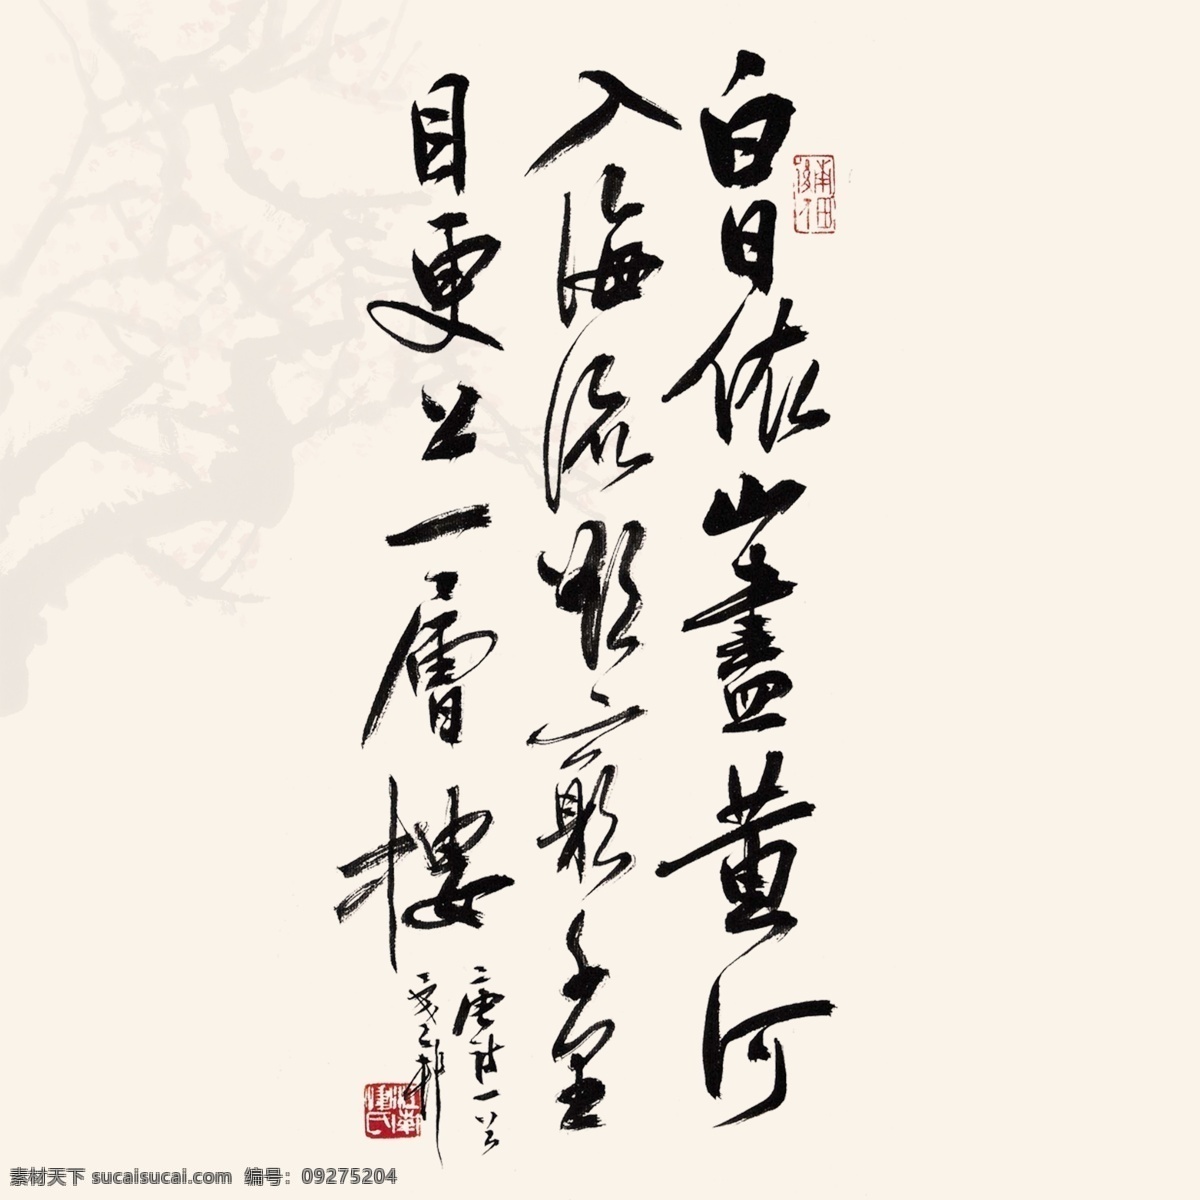 白日依山盡黄河
入海流欲窮千里
目更上一層樓
唐詩一首
素材天下 sucaisucai.com 编号：09275204